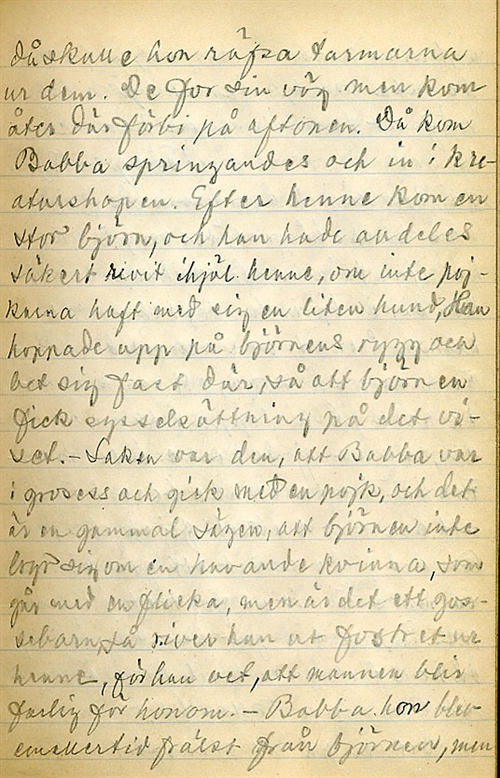 då skulle hon räfsa tarmarna
ur dem. De for sin väg men kom
åter där förbi på aftonen. Då kom
Babba springandes och in i kre-
aturshopen. Efter henne kom en
stor björn, och han hade alldeles
säkert rivit ihjäl henne, om inte poj-
karna haft med sig en liten hund, Han
hoppade upp på björnens rygg och
bet sig fast där, så att björnen
fick sysselsättning på det vi-
set. - Saken var den, att Babba var
i grosess och gick med en pojk, och det
är en gammal sägen, att björnen inte
bryr sig om en havande kvinna, som
går med en flicka, men är det ett gos-
sebarn, så river han ut fostret ur
henne, för han vet, att mannen blir
farlig för honom. - Babba hon blev
emellertid frälst från björnen, men